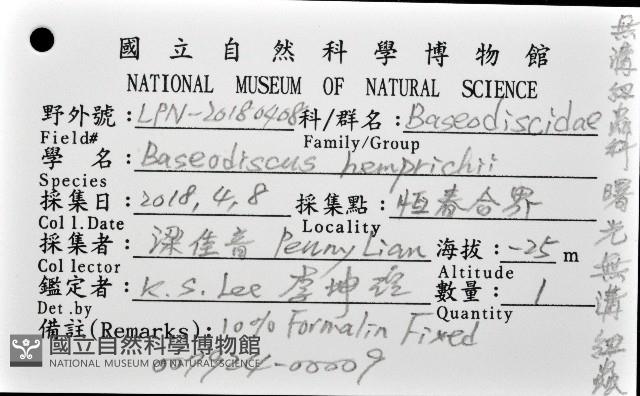 國立自然科學博物館
NATIONAL MUSEUM OF NATURAL SCIENCE
野外號:LPN-20180408 科/群名:Baseodiscidae
Field# Family/Group
學 名:Baseodiscus hemprichii
Species
採集日:2018,4,8 採集點:恆春合界
Coll.Date Locality
採集者:梁佳音 Penny Lian 海拔:-25 m
Collector Altitude
鑑定者:K.S. Lee 李坤瑄 數量:1
Det.by Quantity
備註(Remarks):10% Formalin Fixed
-00009
國立自然科學博物館
NATIONAL MUSEUM OF NATURAL SCIENCE
無溝紐蟲科 曙光無溝紐蟲